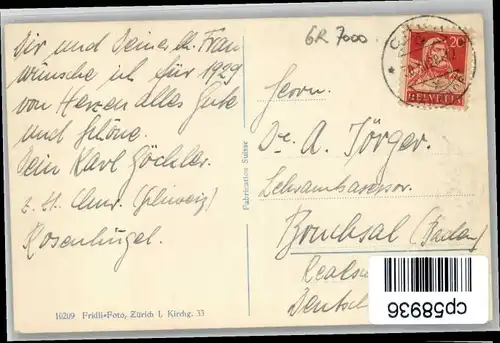 Dir und Deiner lb. Frau
wünsche ich für 1929
von Herzen alles Gute
und Schöne.
Dein Karl Göchler.
z. Zt. Chur (Schweiz)
Rosenhügel.
16209 Fridli-Foto, Zürich I. Kirchg. 33
Fabrication Suisse
GR 7000
20
HELVETIA
Herrn
Dr. A. Jörger.
Lehramtsassessor.
Bruchsal (Baden)
Deutsch
cp58936